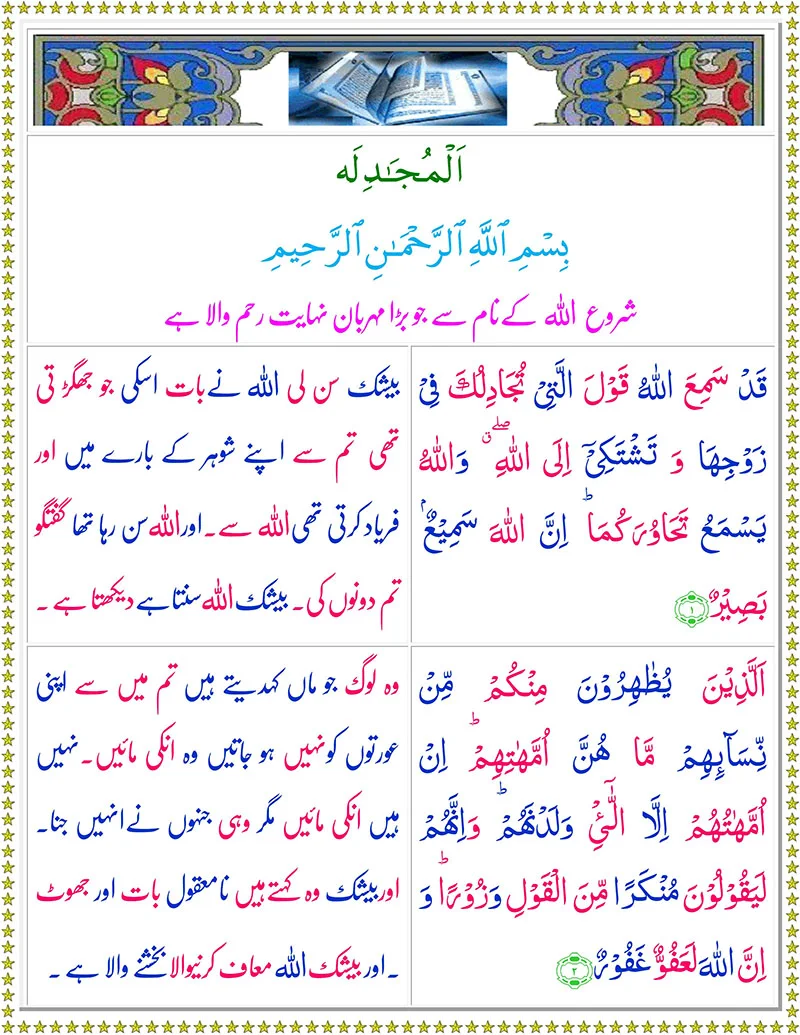 اَلْمُجَادِلَه
بِسْمِ ٱللَّهِ ٱلرَّحْمَـٰنِ ٱلرَّحِيمِ
شروع اللہ کے نام سے جو بڑا مہربان نہایت رحم والا ہے
قَدْ سَمِعَ اللہُ قَوْلَ الَّتِیْ تُجَادِلُكَ فِیْ
زَوْجِهَا وَ تَشْتَكِیْۤ اِلَی اللہِ ۖۗ وَاللہُ
یَسْمَعُ تَحَاوُرَكُمَا ؕ اِنَّ اللہَ سَمِیْعٌۢ
بَصِیْرٌ ۝۱
بیشک سن لی اللہ نے بات اسکی جو جھگڑتی
تھی تم سے اپنے شوہر کے بارے میں اور
فریاد کرتی تھی اللہ سے۔ اور اللہ سن رہا تھا گفتگو
تم دونوں کی۔ بیشک اللہ سنتا ہے دیکھتا ہے ۔
اَلَّذِیْنَ یُظٰهِرُوْنَ مِنْكُمْ مِّنْ
نِّسَآىِٕهِمْ مَّا هُنَّ اُمَّهٰتِهِمْ ؕ اِنْ
اُمَّهٰتُهُمْ اِلَّا الّٰٓـِٔیْ وَلَدْنَهُمْ ؕ وَاِنَّهُمْ
لَیَقُوْلُوْنَ مُنْكَرًا مِّنَ الْقَوْلِ وَزُوْرًا ؕ وَ
اِنَّ اللہَ لَعَفُوٌّ غَفُوْرٌ ۝۲
وہ لوگ جو ماں کہدیتے ہیں تم میں سے اپنی
عورتوں کو نہیں ہو جاتیں وہ انکی مائیں۔ نہیں
ہیں انکی مائیں مگر وہی جنہوں نے انہیں جنا۔
اور بیشک وہ کہتے ہیں نامعقول بات اور جھوٹ
۔ اور بیشک اللہ معاف کرنیوالا بخشنے والا ہے ۔